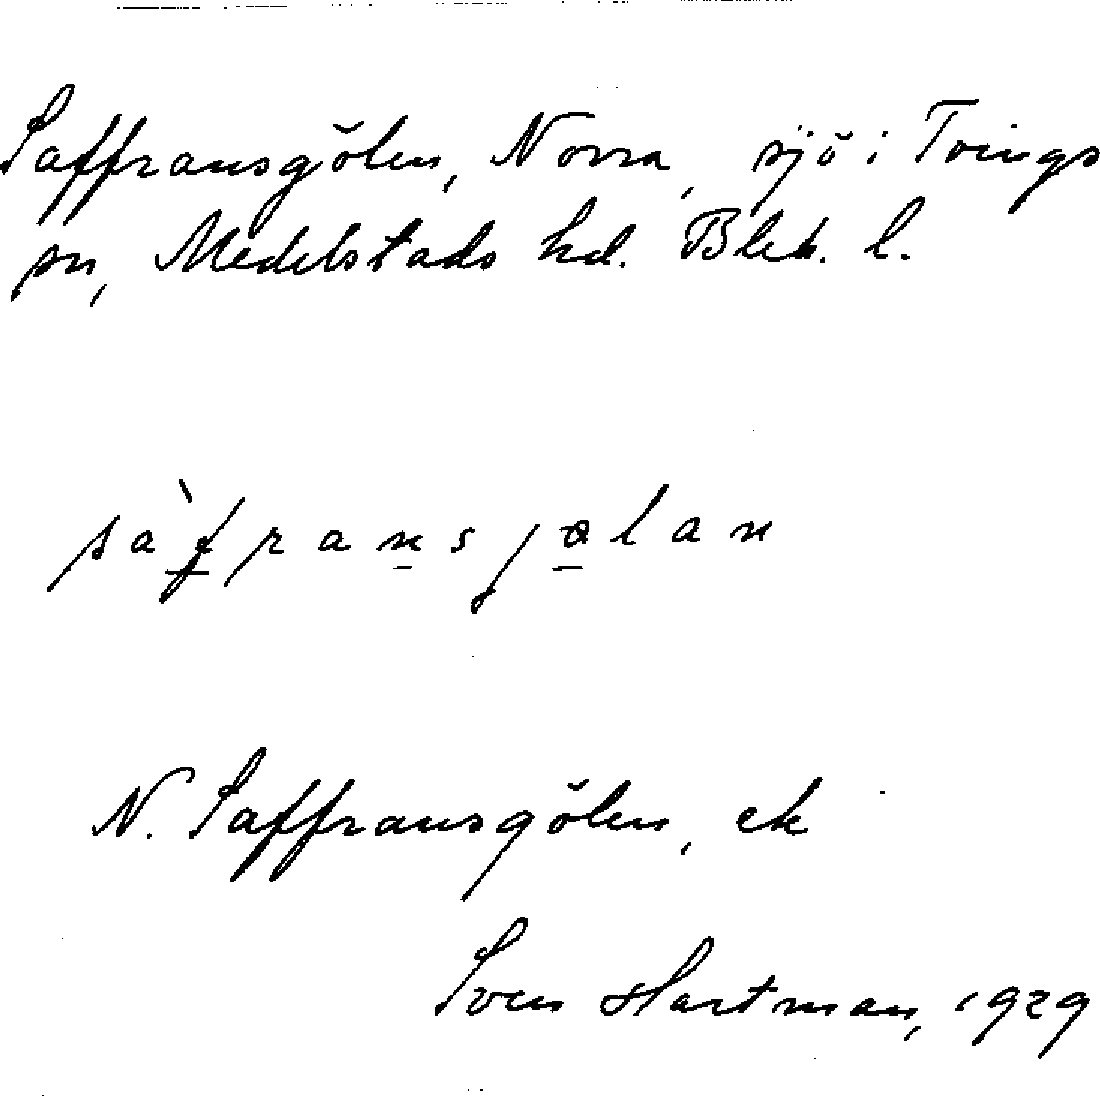 Saffransgölen, Norra, sjö i Tvings
sn, Medelstads hd. Blek. l.
sàf̲ransjɵ̲lan
N. Saffransgölen, ek
Sven Hartman, 1929